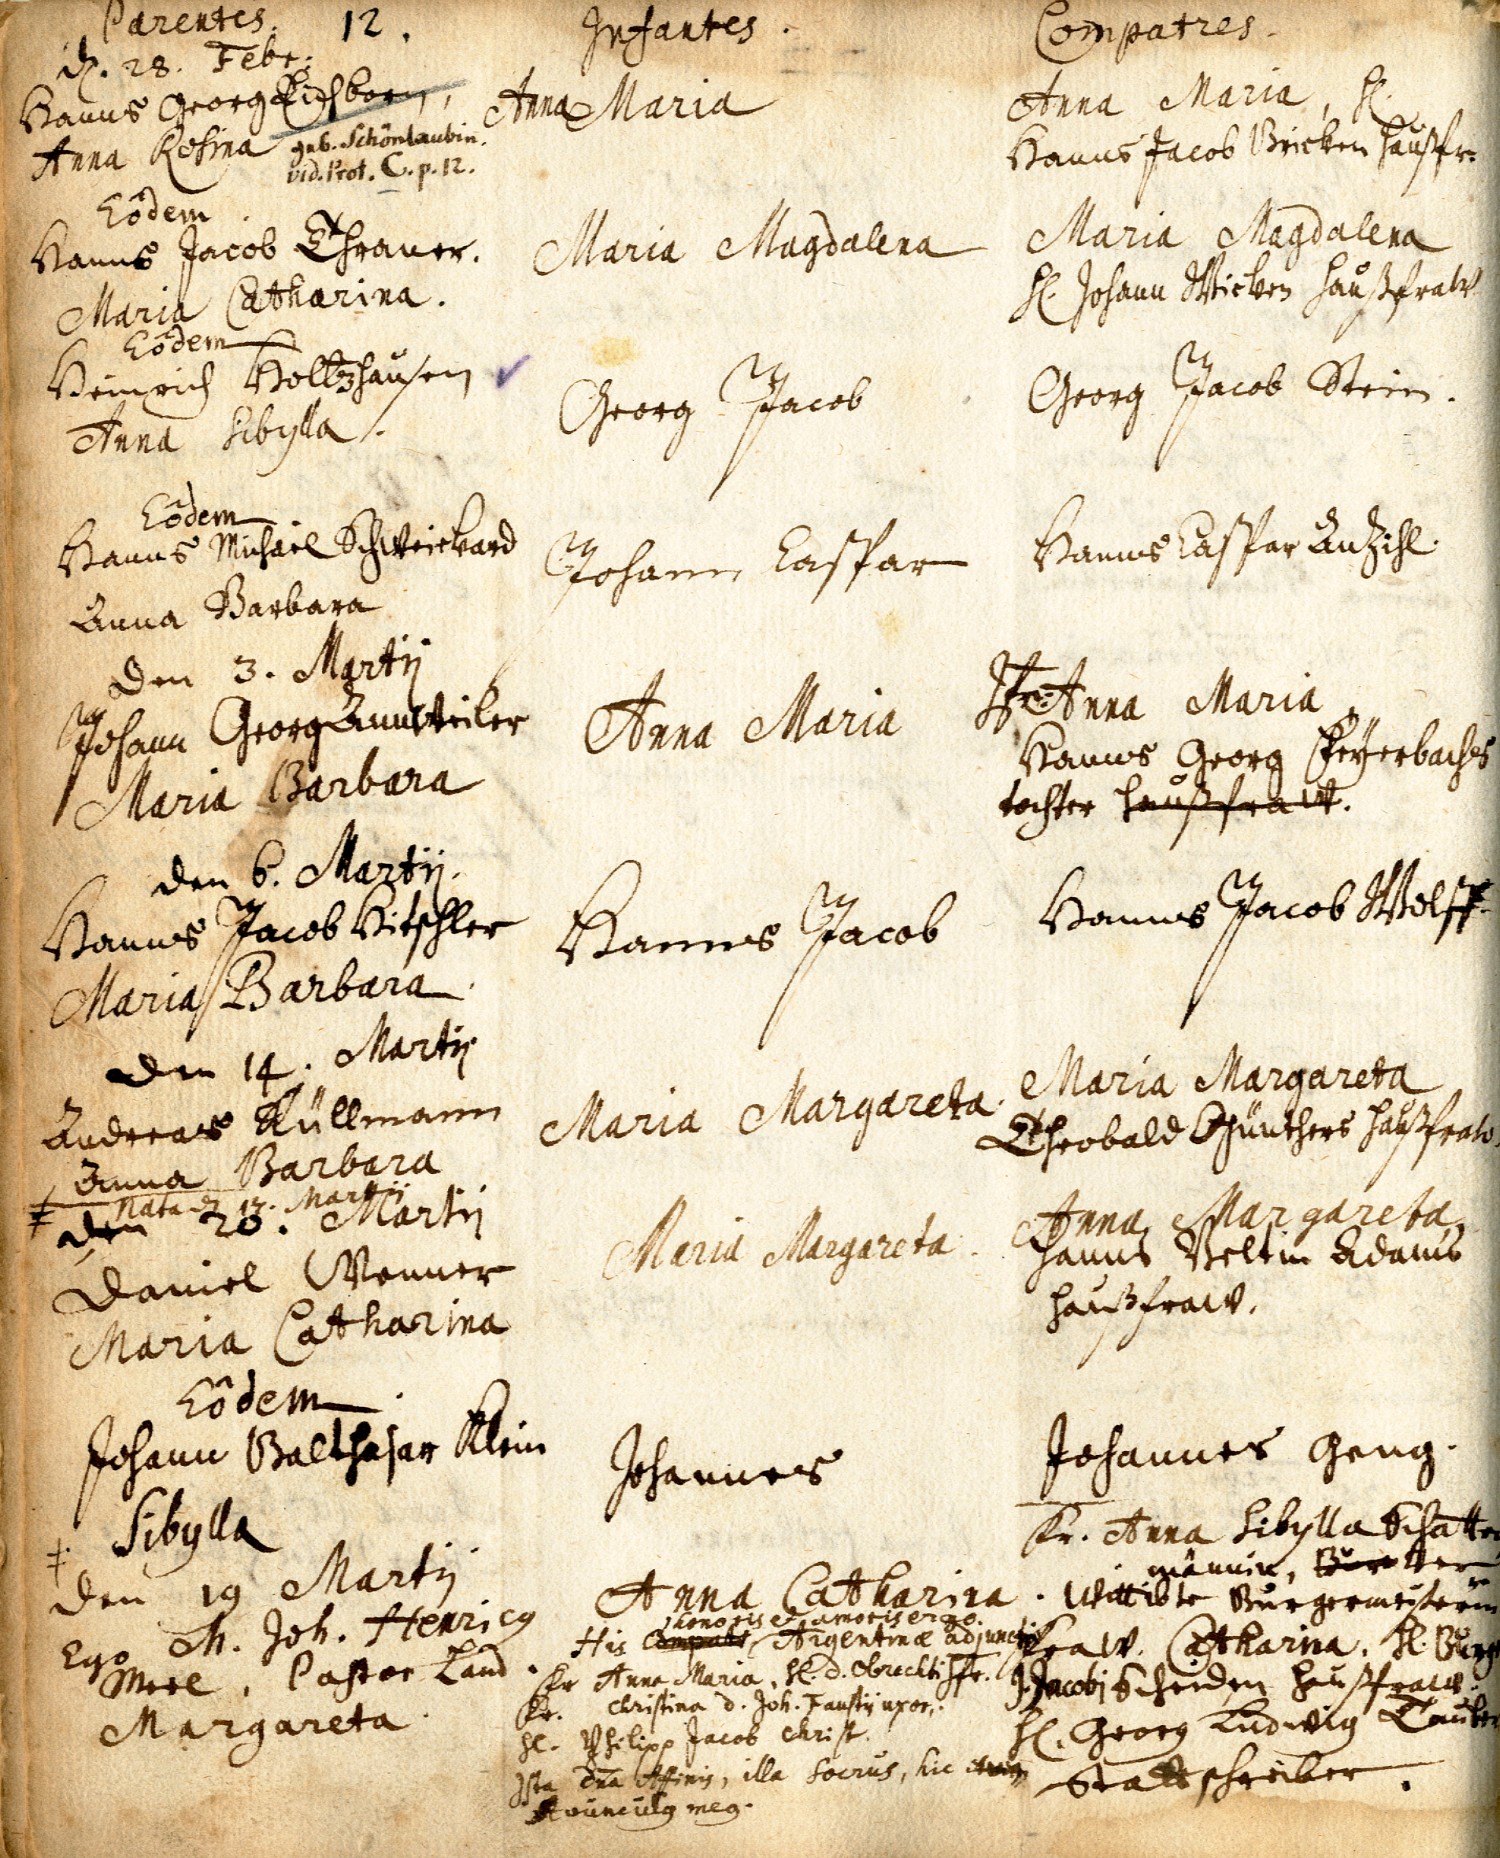 Parentes. 12. Infantes. Compatres.
d. 28. Febr:
Hanns Georg Eichborn, Anna Maria Anna Maria, H.
Anna Rosina geb. Schönlaubin. Hanns Jacob Bricken haußfr:
vid. Prot. C. p. 12.
Eôdem
Hanns Jacob Thrauer. Maria Magdalena Maria Magdalena
Maria Catharina. H. Johann Wicken haußfraw
Eôdem
Heinrich Holtzhausen Georg Jacob Georg Jacob Stein.
Anna Sibylla.
Eôdem
Hanns Michael Schweickard Johann Caspar Hanns Caspar
Anna Barbara
Den 3. Martij
Johann Georg Annweiler Anna Maria Anna Maria
Maria Barbara Hanns Georg Feyerbachs
tochter haußfraw.
den 6. Martij.
Hanns Jacob Hitschler Hanns Jacob Hanns Jacob Wolff
Maria Barbara
den 14. Martij
Andreas Küllmann Maria Margareta. Maria Margareta
Anna Barbara Theobald Günthers haußfraw.
Nata d. 17. Martij
den 20. Martij
Daniel Wenner Maria Margareta Anna Margareta
Maria Catharina Hanns Veltin Adams
haußfraw.
Eôdem
Johann Balthasar Klein Johannes Johannes Geng.
Sibylla
Den 19 Martij Anna Catharina. Fr. Anna Sibylla Schatte
männin,
Wittibte Burgermeisterin
Ego M. Joh. Henricg Fraw. Catharina, H. Burg
Merl, Pastor Land. J. Jacobj Scheiden haußfraw.
Margareta. H. Georg Ludwig Tauber
Stattschreiber.
honoris et amoris ergo.
His Argentinæ adjuncti
Fr Anna Maria, H. d. Obrechti
Fr. Christina D. Joh. Faustij uxor,
H. Philipp Jacob Christ.
Ista Affinis, illa Socrus, hic
Avunculg meg.